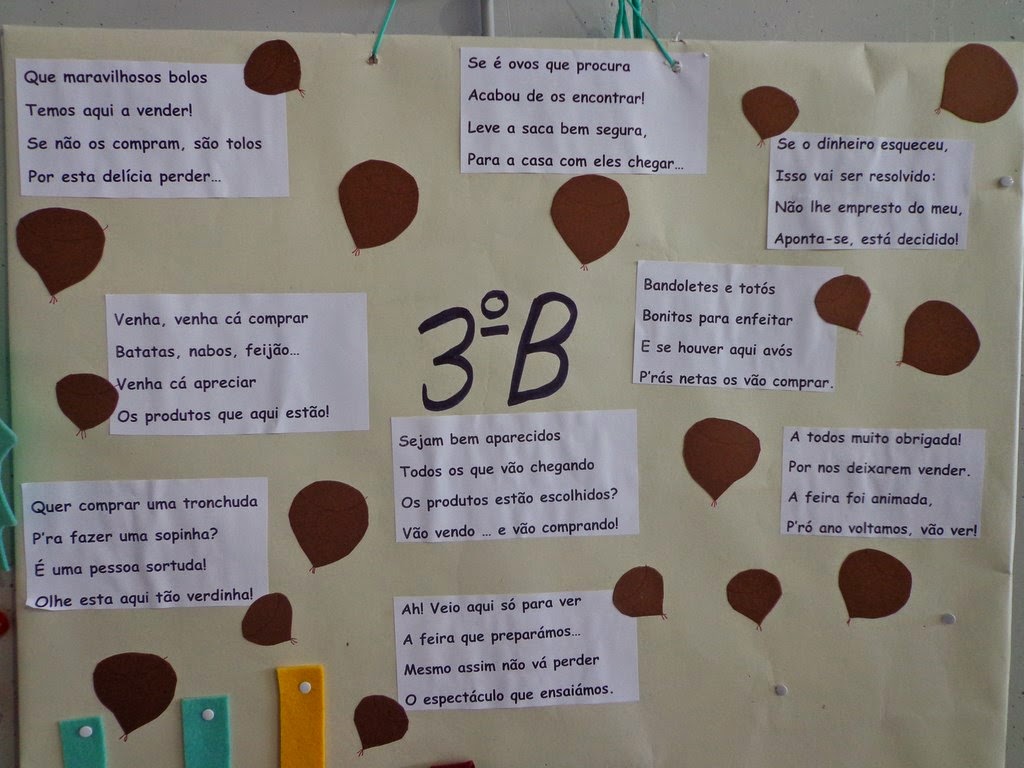 Que maravilhosos bolos
Temos aqui a vender!
Se não os compram, são tolos
Por esta delícia perder…
Se é ovos que procura
Acabou de os encontrar!
Leve a saca bem segura,
Para a casa com eles chegar…
Se o dinheiro esqueceu,
Isso vai ser resolvido:
Não lhe empresto do meu,
Aponta-se, está decidido!
Venha, venha cá comprar
Batatas, nabos, feijão…
Venha cá apreciar
Os produtos que aqui estão!
3º B
Bandoletes e totós
Bonitos para enfeitar
E se houver aqui avós
P'rás netas os vão comprar.
Sejam bem aparecidos
Todos os que vão chegando
Os produtos estão escolhidos?
Vão vendo … e vão comprando!
A todos muito obrigada!
Por nos deixarem vender.
A feira foi animada,
P'ró ano voltamos, vão ver!
Quer comprar uma tronchuda
P'ra fazer uma sopinha?
É uma pessoa sortuda!
Olhe esta aqui tão verdinha!
Ah! Veio aqui só para ver
A feira que preparámos…
Mesmo assim não vá perder
O espectáculo que ensaiámos.